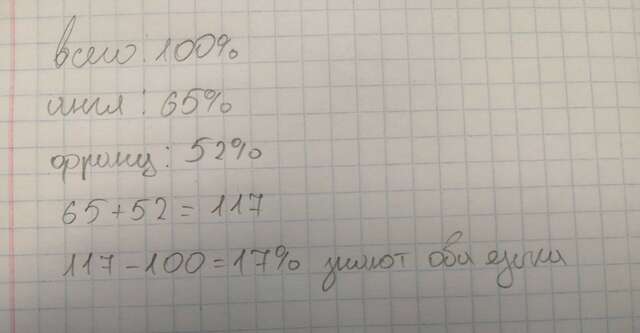 всего: 100%
англ: 65%
франц: 52%
65+52=117
117-100=17% знают оба языка